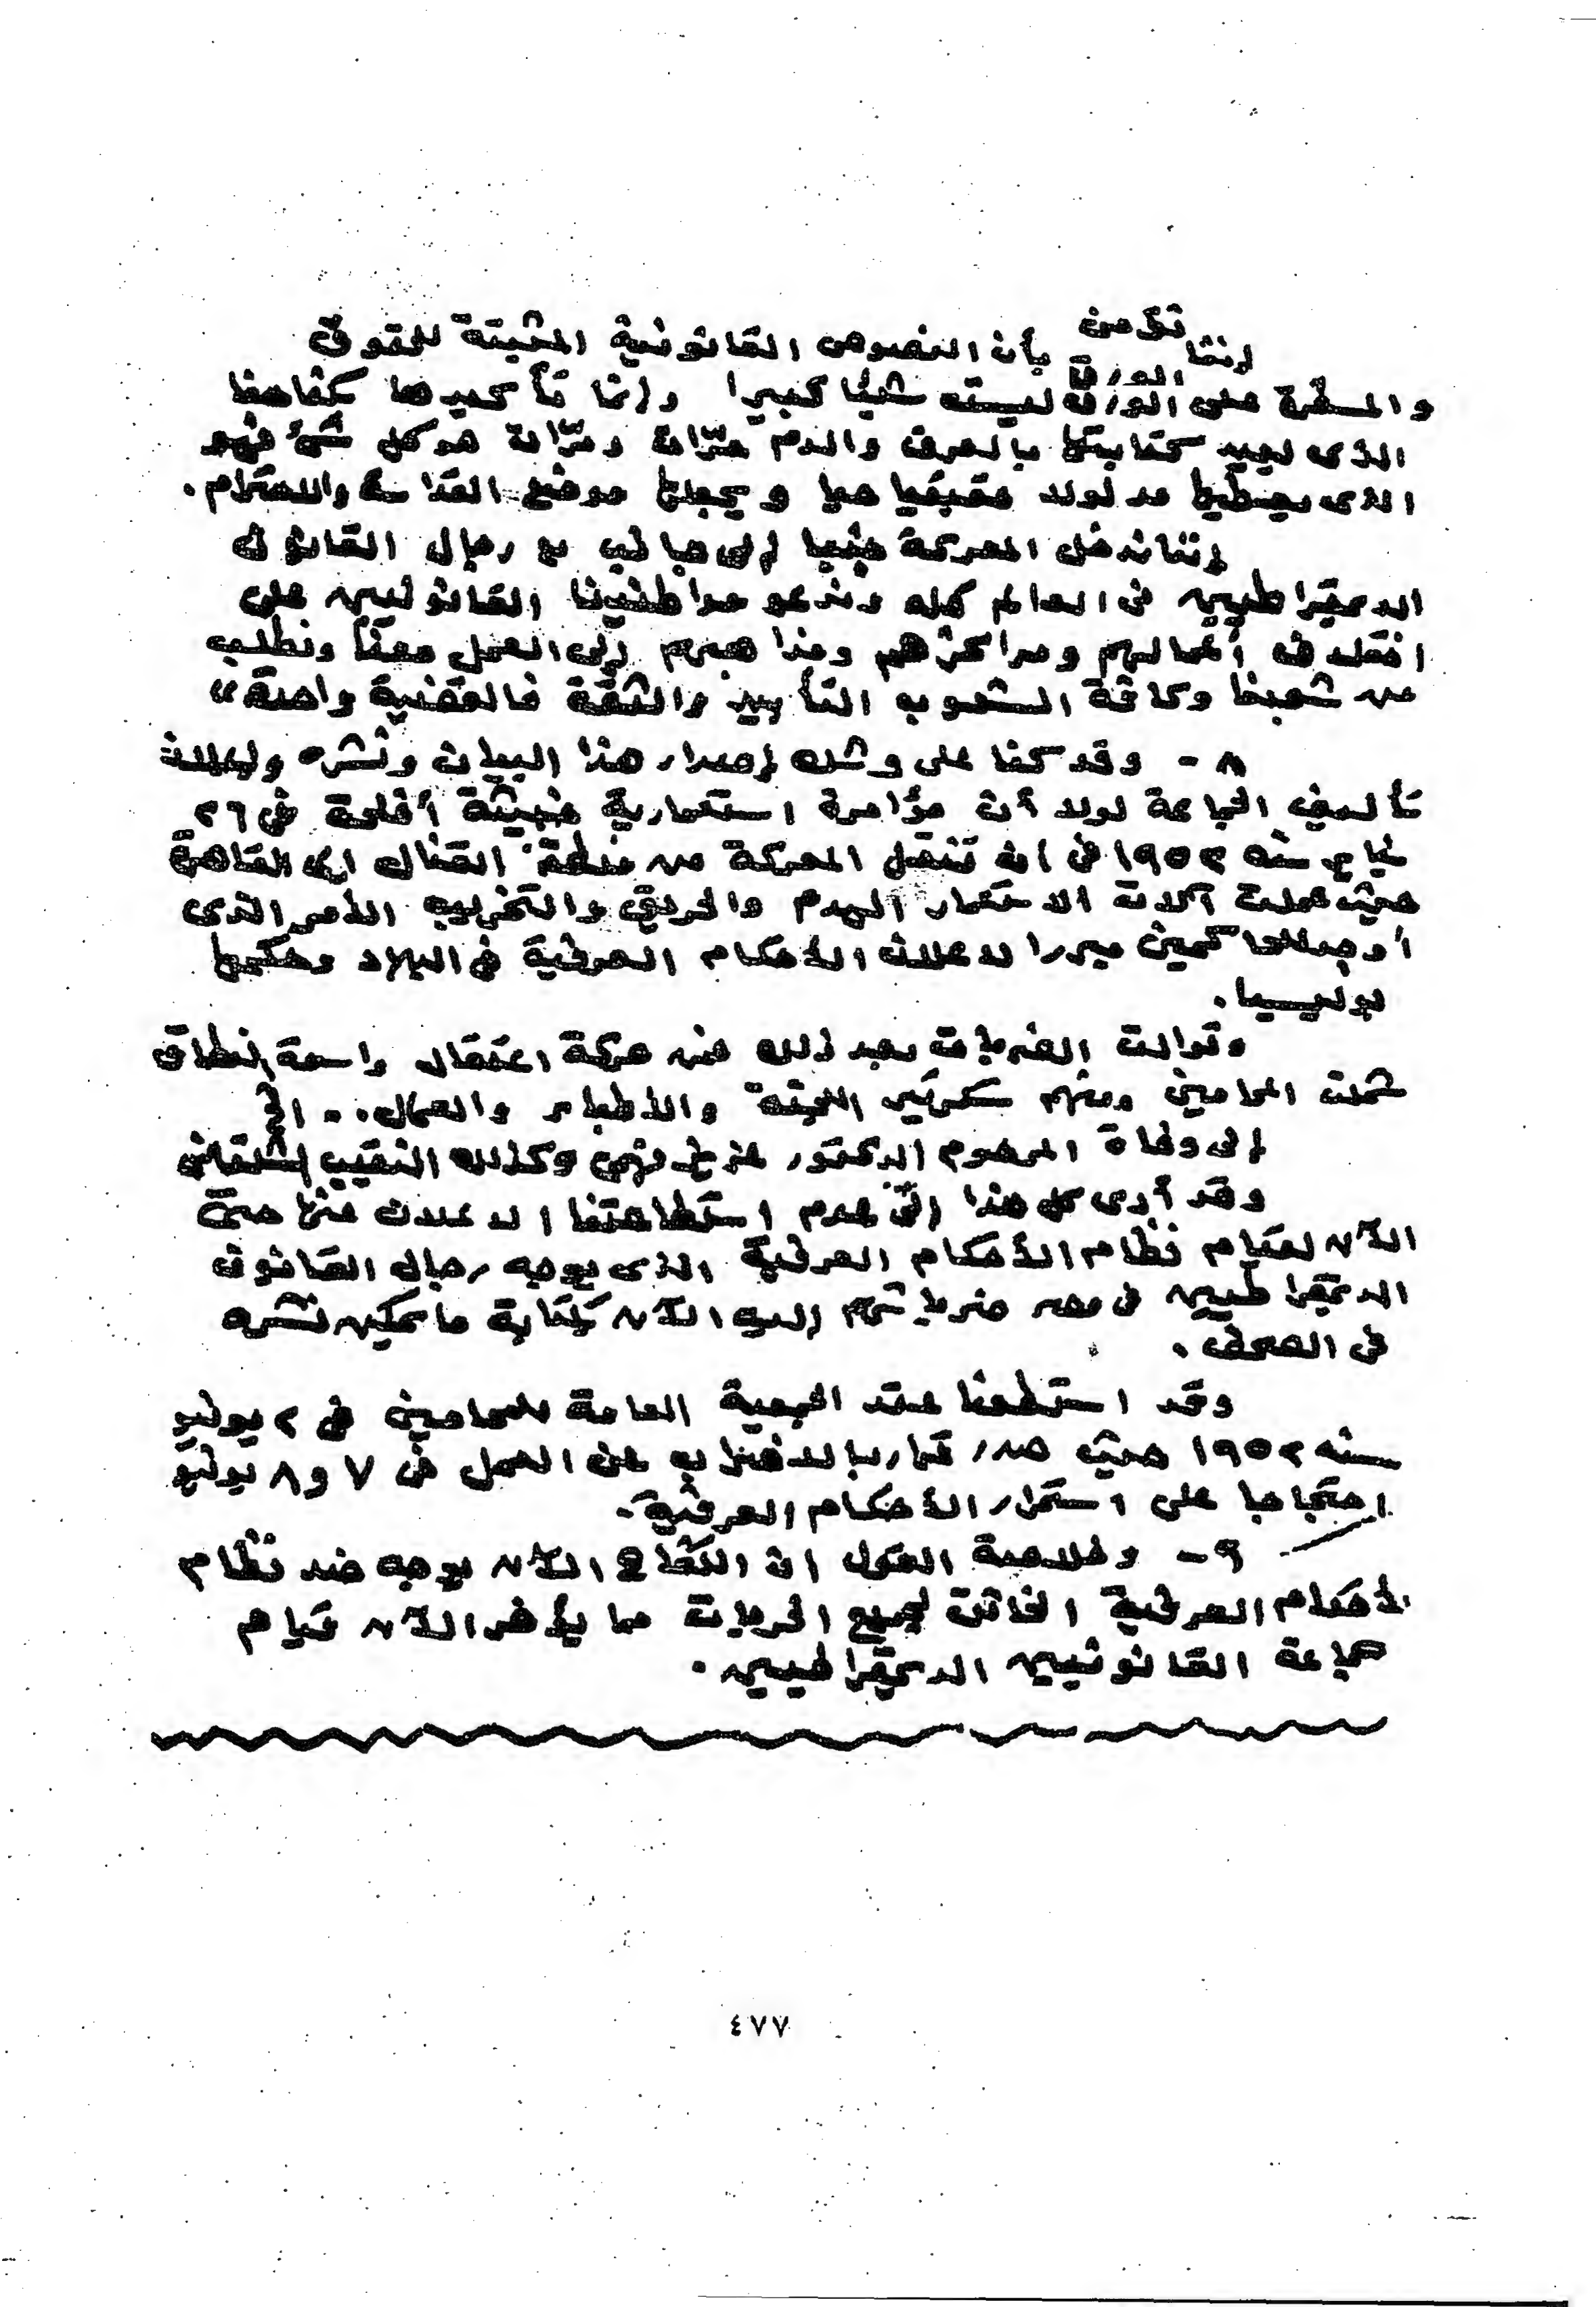 إننا نؤمن بأن النصوص القانونية المثبتة للحقوق
والمسطرة على الورق ليست شيئا كبيرا وإنما تأكيدها بكفاحنا
الذى يعيد كتابتها بالعرق والدم مرات ومرات هو كل شئ فهو
الذى يعطيها مدلولا حقيقيا حيا ويجعلها موضع القداسة والاحترام.
إننا ندخل المعركة جنبا إلى جانب مع رجال القانون
الديمقراطيين فى العالم كله وندعو مواطنينا القانونيين على
اختلاف أعمالهم ومراكزهم ومذاهبهم إلى العمل معنا ونطلب
من شعبنا وكافة الشعوب التأييد والثقة فالقضية واحدة"
٨ - وقد كنا على وشك إصدار هذا البيان ونشره وإعلان
تأليف الجماعة لولا أن مؤامرة استعمارية خبيثة أفلحت فى ٢٦
يناير سنه ١٩٥٢ فى أن تنقل المعركة من منطقة القنال الى القاهرة
حيث عملت آلات الاستعمار الهدم والحريق والتخريب الأمر الذى
مبررا لاعلان الأحكام العرفية فى البلاد وحكمها
بوليسيا.
وتوالت الضربات بعد ذلك من حركة اعتقال واسعة النطاق
شملت المحامين ومنهم سكرتير اللجنة والأطباء والعمال.. الخ
إلى وفاة المرحوم الدكتور عزيز فهمى وكذلك النقيب الشلقانى
وقد أدى كل هذا إلى عدم استطاعتنا الاعلان عنها حتى
الآن لقيام نظام الأحكام العرفية الذى يوجه رجال القانون
الديمقراطيين فى مصر ضرباتهم إليه الآن بكتابة ما يمكن نشره
فى الصحف.
وقد استطعنا عقد الجمعية العامة للمحامين فى ٢ يوليو
سنه ١٩٥٢ حيث صدر قرار بالاضراب عن العمل فى ٧ و ٨ يوليو
احتجاجا على استمرار الأحكام العرفية.
٩ - وخلاصة القول ان الكفاح الآن يوجه ضد نظام
الأحكام العرفية الخانق لجميع الحريات مما يؤخر الآن قيام
جماعة القانونيين الديمقراطيين.
٤٧٧